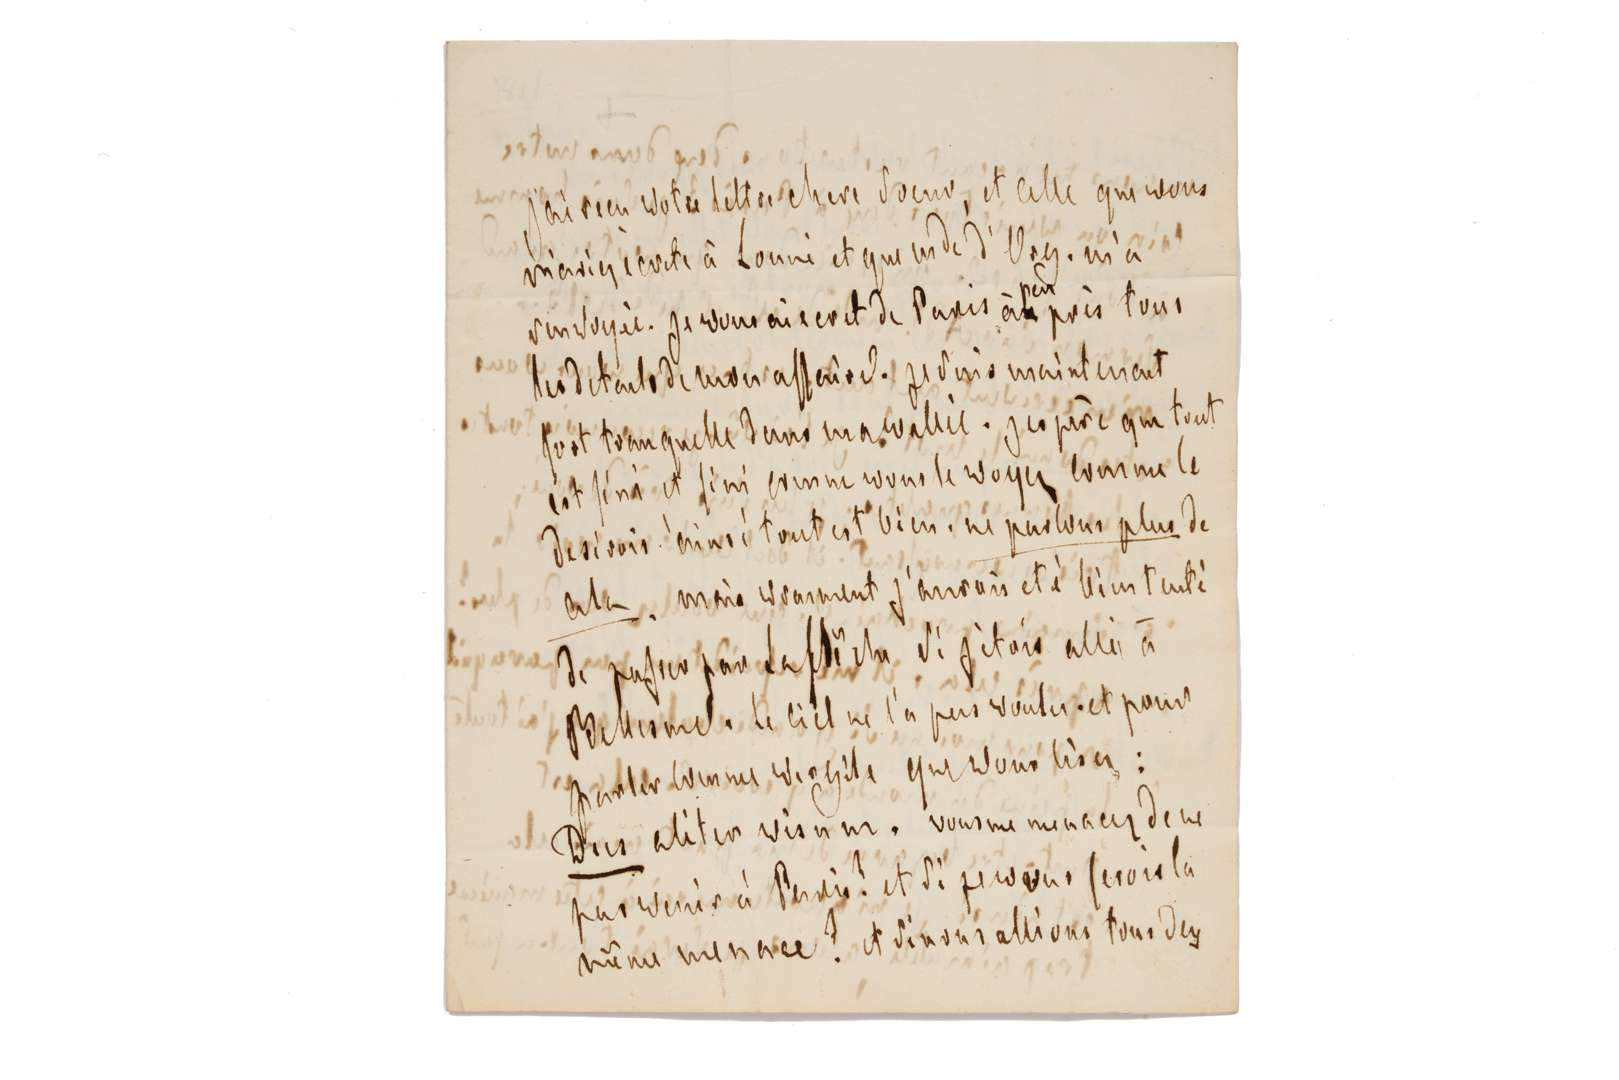 j'ai recu votre lettre chere soeur, et celle que vous
m'aviez ecrite à Louvié et que md̃e d'Org. m'a
renvoyée. je vous ai ecrit de Paris à peu près tous
les details de mon affaire. je suis maintenant
fort tranquelle dans ma vallée. j'espère que tout
est fini et fini comme vous le voyez comme le
desirois ainsi tout est bien. ne parlons plus de
cela. mais vraiment j'aurois eté bien tenté
de passer par La flêche si j'étois allé à
Bellesme. le ciel ne l'a pas voulu. et pour
parler comme virgile que vous lisez :
Dies aliter visum. vous me menacez de ne
pas venir à Paris? et si je vous ferois la
même menace? et si nous allions tous deux